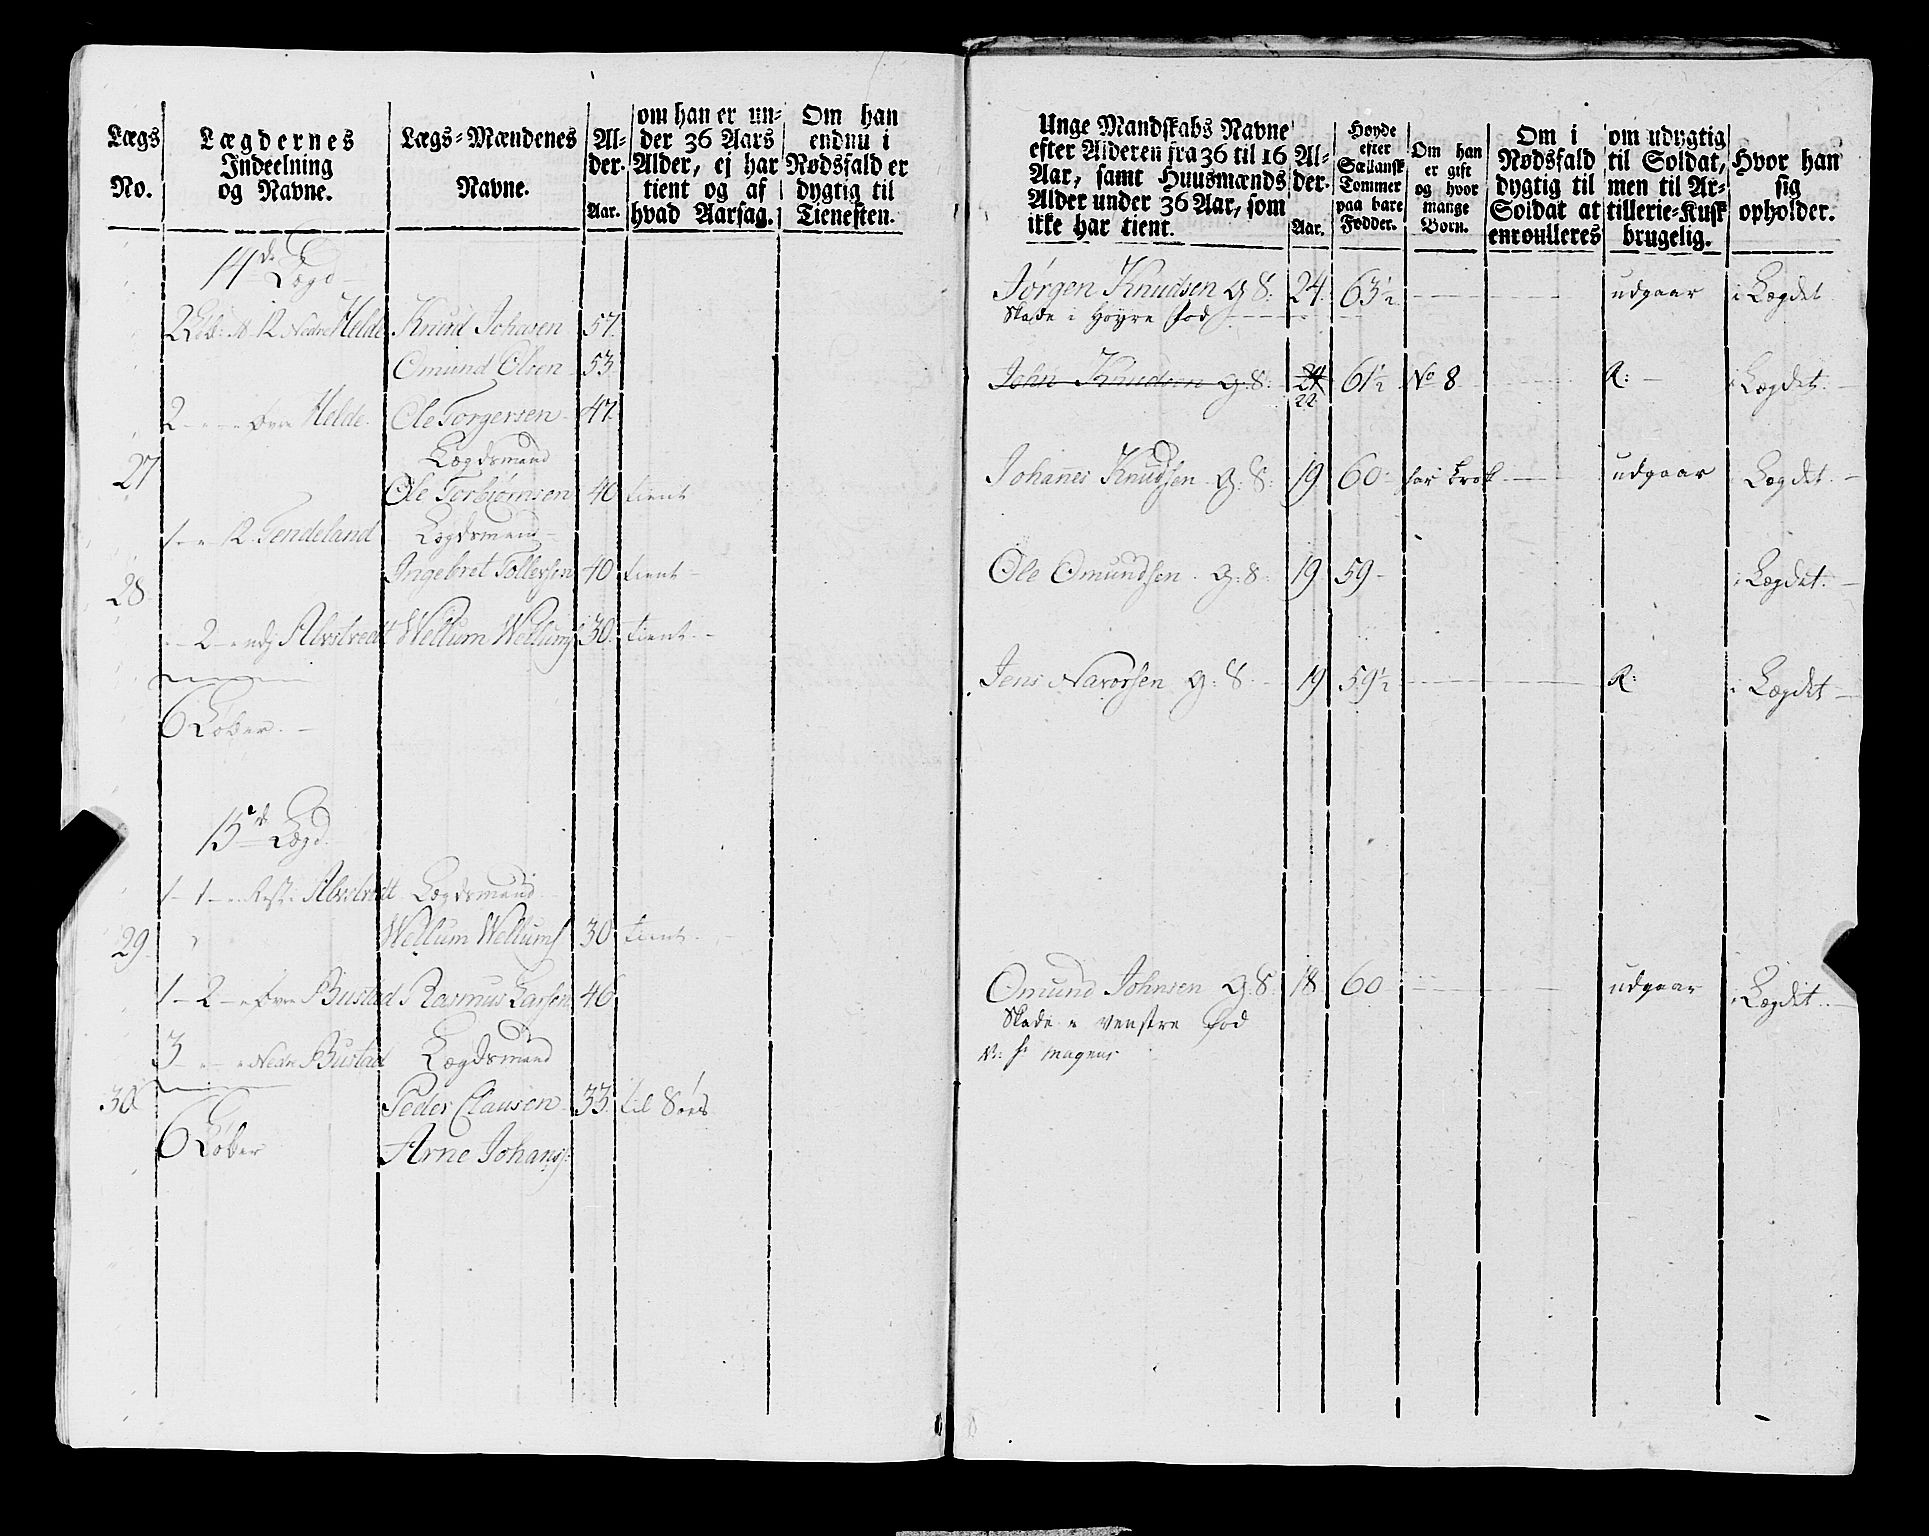 Lægs No.
Lægdernes Indeelning og Navne.
Lægs-Mændenes Navne.
Alder. Aar.
om han er under 36 Aars Alder, ej har tient og af hvad Aarsag.
Om han endnu i Nødsfald er dygtig til Tienesten.
14de Lægd
2 Nedre Helde Knud Johnsen 57
Omund Olsen 53
2 Øvre Helde Ole Torgersen 47
Lægdsmand
27 Ole Torbiørnsen 40 tient
1 Tendeland Lægdsmand
28 Ingebret Tollefsen 40 tient
2 Alvstvedt Wellum Wellums 30 tient
6 Løber
15de Lægd
1 - 1 Alvstvedt Lægdsmand
29 Wellum Wellums 30 tient
1 - 2 Øvre Bustad Rasmus Larsen 46
3 Nedre Bustad Lægdsmand
30 Peder Clausen 33 til Søes
6 Løber Arne Johans
Unge Mandskabs Navne efter Alderen fra 36 til 16 Aar, samt Huusmænds Alder under 36 Aar, som ikke har tient.
Alder. Aar.
Høyde efter Sællansk Tommer paa bare Fødder.
Om han er gift og hvor mange Børn.
Om i Nødsfald dygtig til Soldat at enroulleres
om udygtig til Soldat, men til Artillerie-Kusk brugelig.
Hvor han sig opholder.
Jørgen Knudsen G: S: 24 63½ udgaar i Lægdet
Skade i Høyre fod
John Knudsen G: S: 24 61½ No 8 R: i Lægdet
22
Johanes Knudsen G: S: 19 60 udgaar i Lægdet
Ole Omundsen G: S: 19 59 i Lægdet
Jens G: S: 19 59½ R: i Lægdet
Omund Johnsen G: S: 18 60 udgaar i Lægdet
Skade i venstre fod